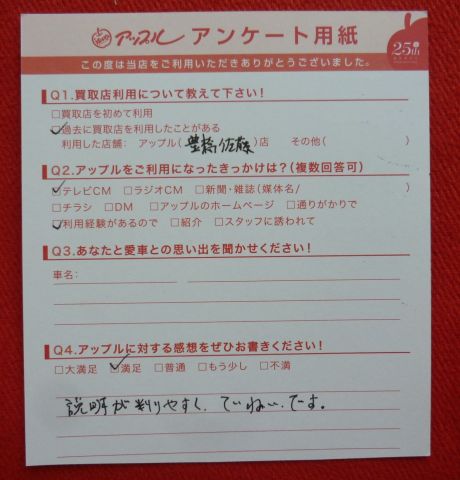 アップル アンケート用紙
25th
この度は当店をご利用いただきありがとうございました。
Q1.買取店利用について教えて下さい!
□買取店を初めて利用
☑過去に買取店を利用したことがある
利用した店舗: アップル(豊橋佐藤)店 その他( )
Q2.アップルをご利用になったきっかけは?(複数回答可)
☑テレビCM □ラジオCM □新聞・雑誌(媒体名/ )
□チラシ □DM □アップルのホームページ □通りがかりで
☑利用経験があるので □紹介 □スタッフに誘われて
Q3.あなたと愛車との思い出を聞かせてください!
車名:
Q4.アップルに対する感想をぜひお書きください!
□大満足 ☑満足 □普通 □もう少し □不満
説明が判りやすく、ていねいです。